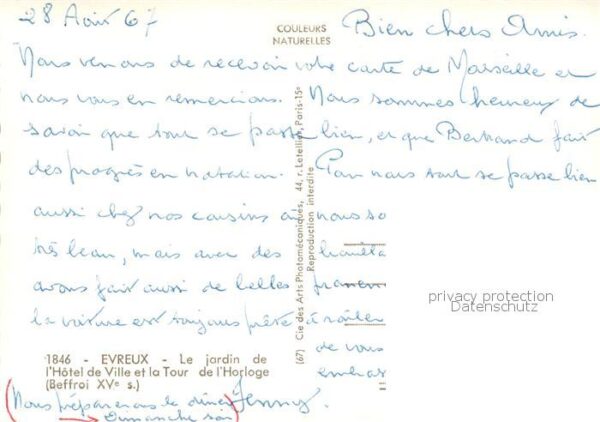 28 Août 67
COULEURS
NATURELLES
Bien chers Amis.
Nous venons de recevoir votre carte de Marseille et
nous vous en remercions. Nous sommes heureux de
savoir que tout se passe bien, et que Bertrand fait
des progrès en natation. Pour nous tout se passe bien
aussi chez nos cousins où nous so
très beau, mais avec des
avons fait aussi de belles
la voiture est toujours prête à
de vous
embras
1846 - EVREUX - Le jardin de
l'Hôtel de Ville et la Tour de l'Horloge
(Beffroi XVe s.)
(Nous préparerons le dîner
Dimanche soir)
Jenny.
(67) Cie des Arts Photomécaniques, 44, r. Letellier, Paris-15e
Reproduction interdite
privacy protection
Datenschutz